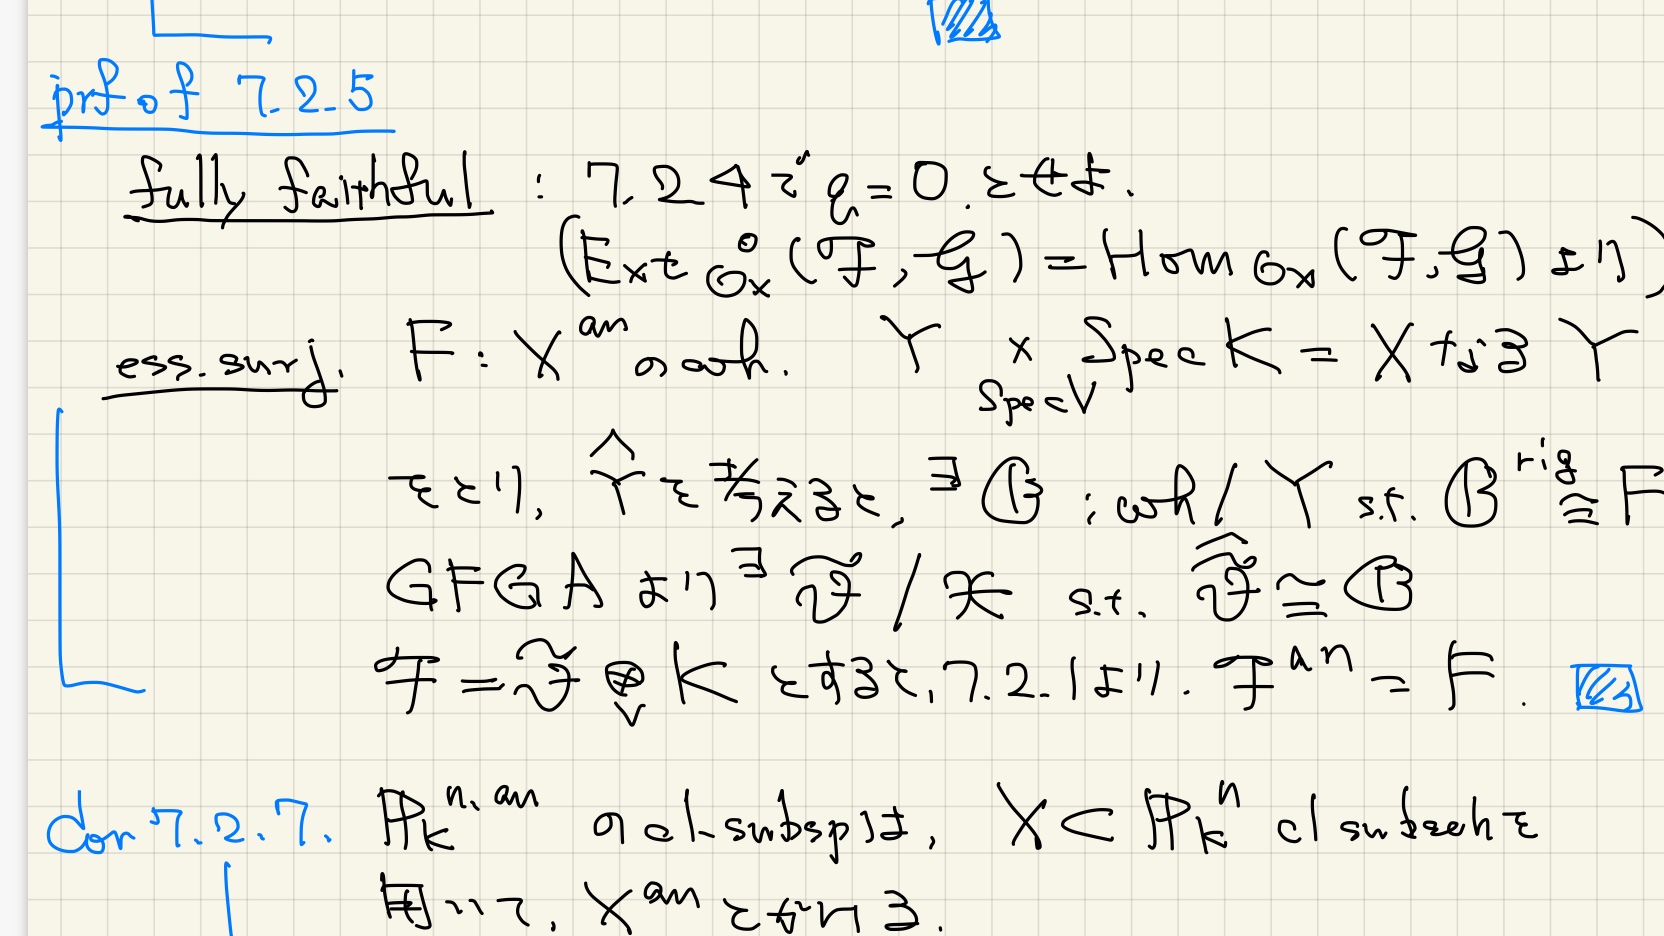 prf of 7.2.5
fully faithful : 7.2.4 で q = 0 とせよ.
(Ext⁰_{O_X}(ℱ, 𝒢) = Hom_{O_X}(ℱ, 𝒢) より)
ess. surj. F : X^{an} の coh. Y ×_{Spec V} Spec K = X なる Y
をとり, Ŷ を考えると, ∃ ℬ : coh / Y s.t. ℬ^{rig} ≅ F
GFGA より ∃ ℱ̃ / 𝒳 s.t. ℱ̃^ ≅ ℬ
ℱ = ℱ̃ ⊗_V K とすると, 7.2.1 より. ℱ^{an} = F.
Cor 7.2.7. ℙ_K^{n, an} の cl. subsp は, X ⊂ ℙ_K^n cl subsch を
用いて, X^{an} とかける.